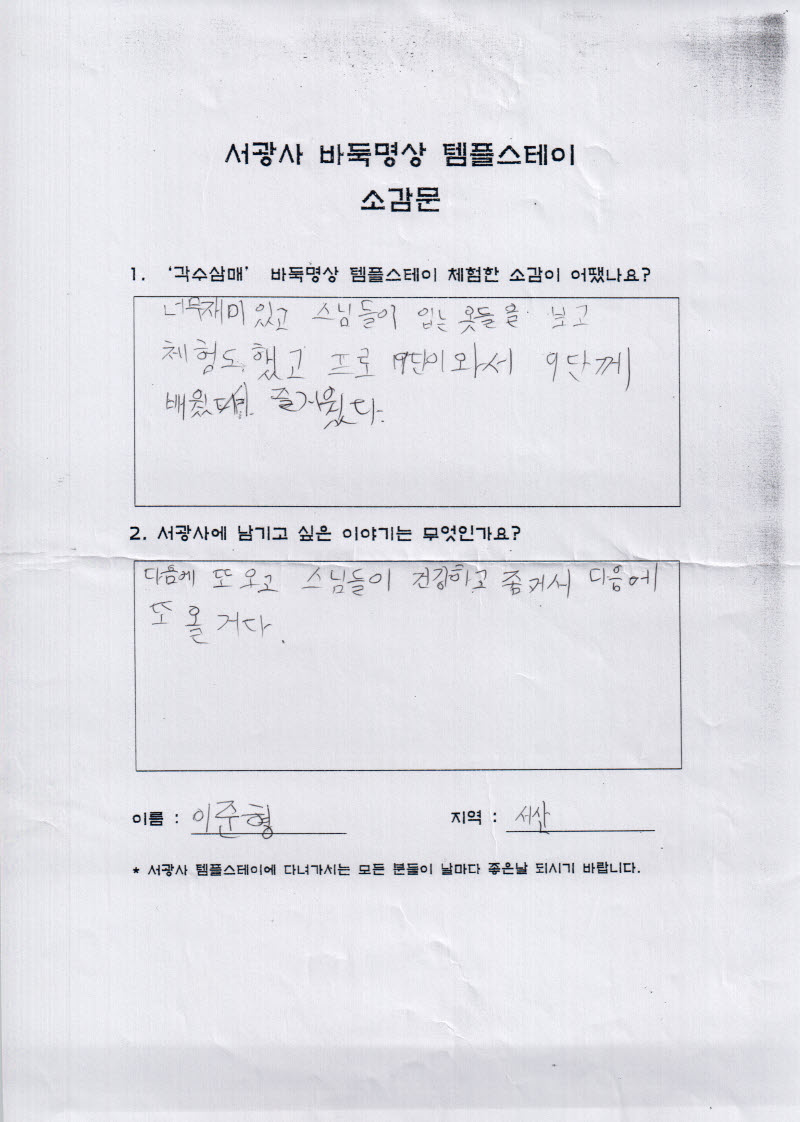 서광사 바둑명상 템플스테이
소감문
1. ‘각수삼매’ 바둑명상 템플스테이 체험한 소감이 어땠나요?
너무재미 있고 스님들이 입는 옷들을 보고
체험도 했고 프로 9단이와서 9단께
배웠다. 즐거웠다.
2. 서광사에 남기고 싶은 이야기는 무엇인가요?
다음에 또 오고 스님들이 건강하고 다음에
또 올 거다.
이름 : 이준형
지역 : 서산
* 서광사 템플스테이에 다녀가시는 모든 분들이 날마다 좋은날 되시기 바랍니다.